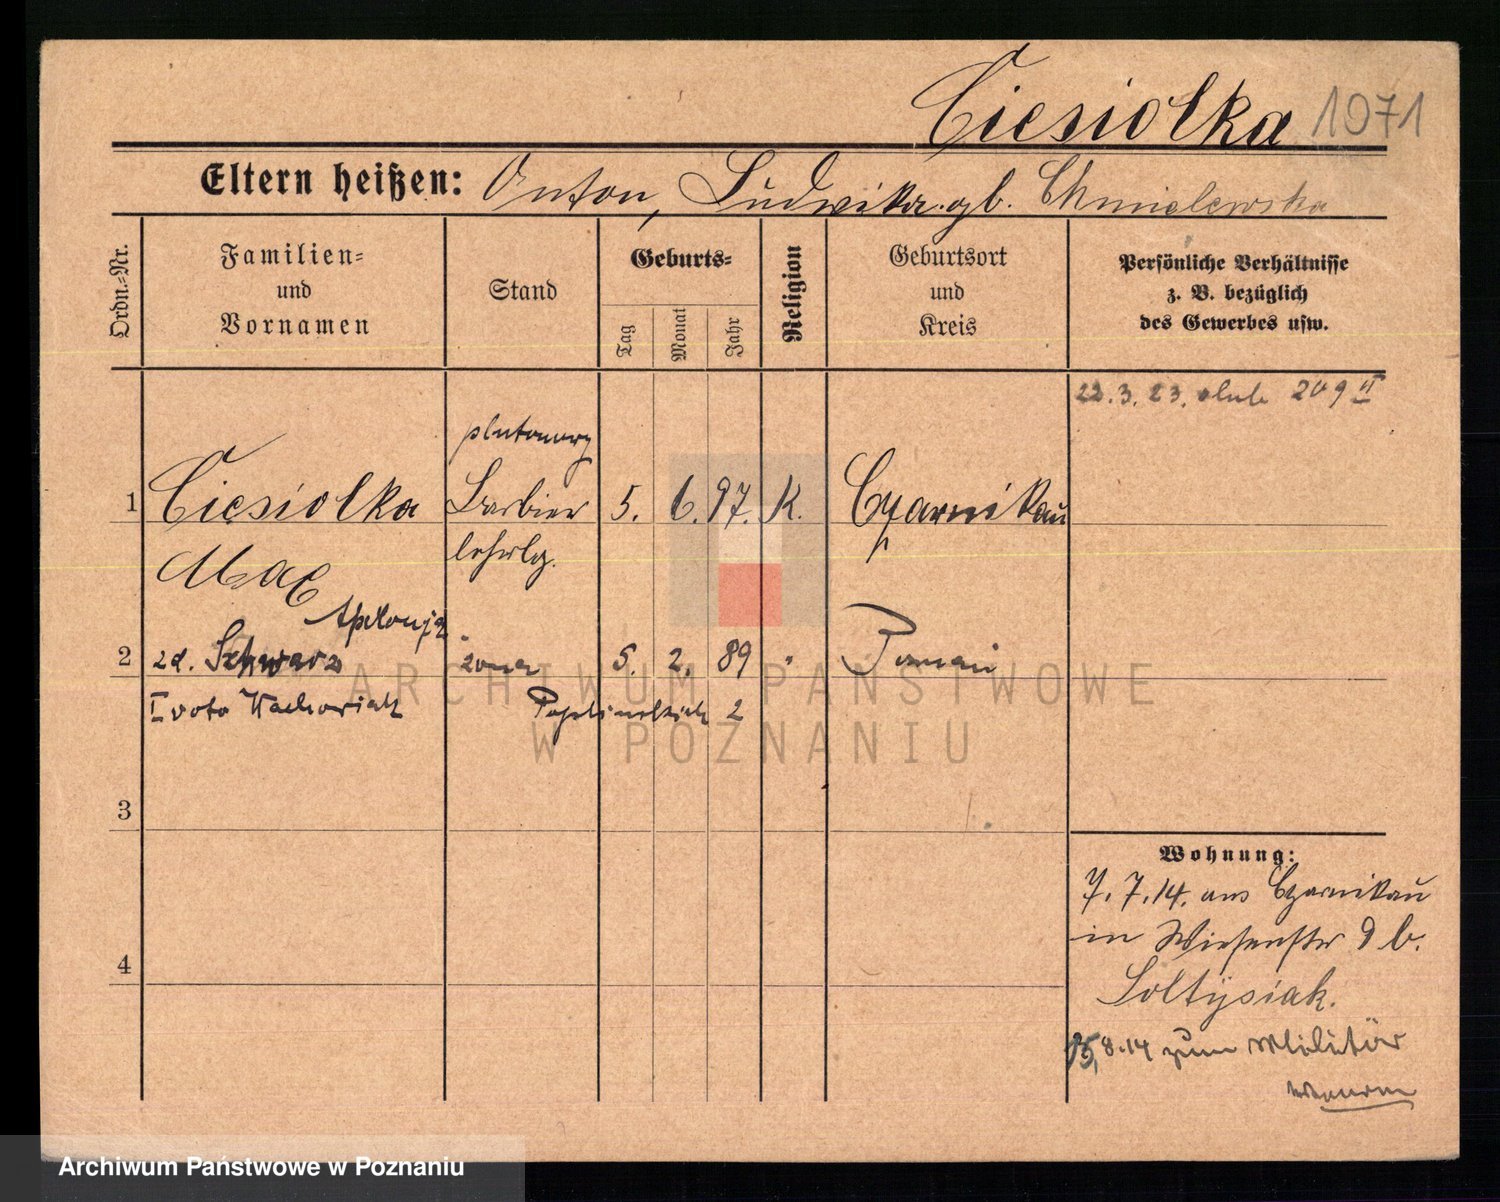 Ciesiolka 1071
Eltern heißen: Anton, Ludwika gb. Chmielewska
Ordn.-Nr.
Familien-
und
Vornamen
Stand
Geburts-
Tag
Monat
Jahr
Religion
Geburtsort
und
Kreis
Persönliche Verhältnisse
z. B. bezüglich
des Gewerbes usw.
22.3.23. ślub 209 II
plutonowy
1 Ciesiolka Barbier 5. 6. 97. K. Czarnikau
Max lehrlg.
Apolonja
2 zd. Schwarz żona 5. 2. 89 " Poznań
I voto Kachoriak Poplinskich 2
3
4
Wohnung:
7.7.14. aus Czarnikau
in Wiesenstr 9 b.
Soltysiak.
15.8.14 zum Militär
ARCHIWUM PAŃSTWOWE
W POZNANIU
Archiwum Państwowe w Poznaniu